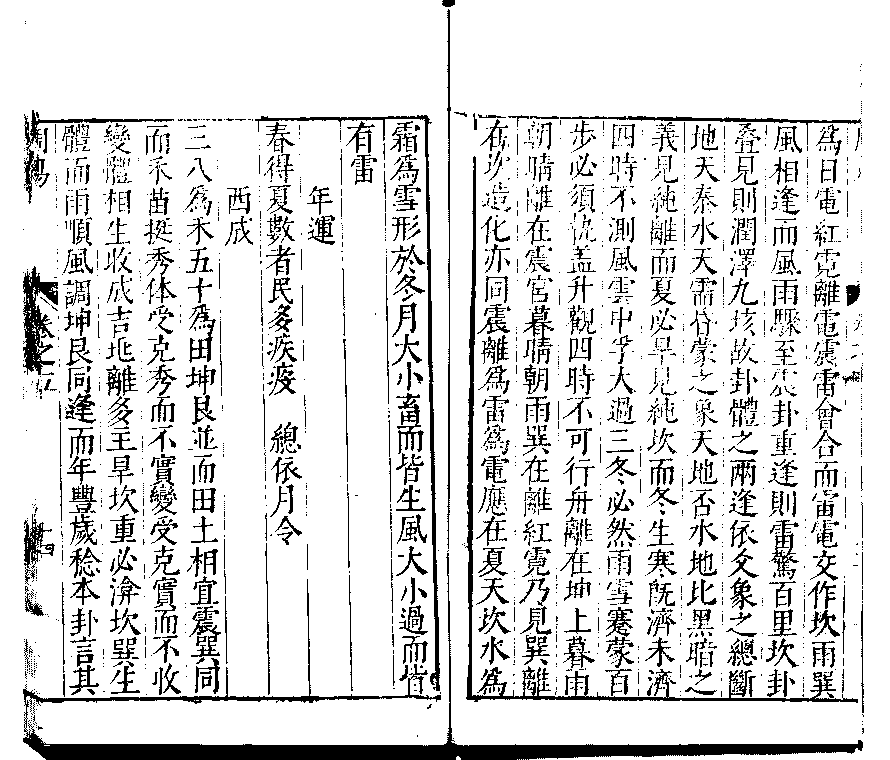 爲日電紅霓離電震雷會合而雷電交作坎雨巽
風相逢而風雨驟至震卦重逢則雷驚百里坎卦
疊見則潤澤九垓故卦體之兩逢依爻象之總斷
地天泰水天需昏蒙之象天地否水地比黑暗之
義見純離而夏必旱見純坎而冬生寒旣濟未濟
四時不測風雲中孚大過三冬必然雨雪蹇蒙百
步必須執盖升觀四時不可行舟離在坤上暮雨
朝晴離在震宮暮晴朝雨巽在離紅霓乃見巽離
在坎造化亦同震離爲雷爲電應在夏天坎水爲
霜爲雪形於冬月大小畜而皆生風大小過而皆
有雷
年運
春得夏數者民多疾疫　總依月令
西成
三八爲木五十爲田坤艮並而田土相宜震巽同
而禾苗挺秀体受克秀而不實變受克實而不收
變體相生收成吉兆離多主旱坎重必渰坎巽生
體而雨順風調坤艮同逢而年豐歲稔本卦言其
卷之五